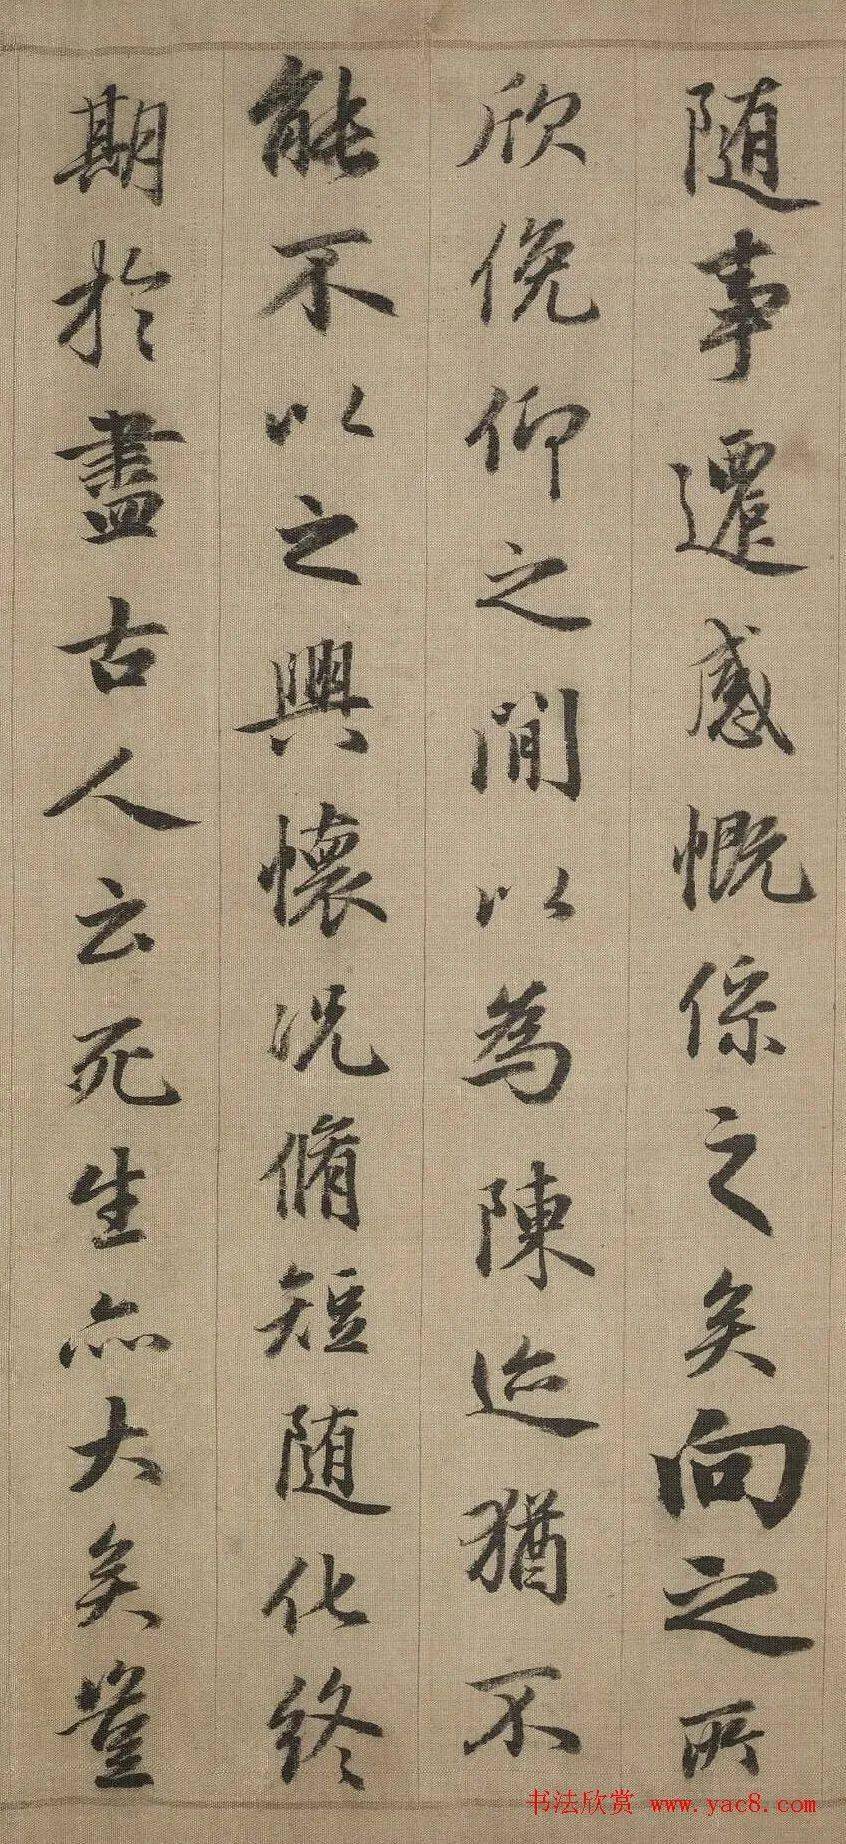 随事遷感慨係之矣向之所
欣俛仰之間以為陳迹猶不
能不以之興懷況脩短随化終
期於盡古人云死生亦大矣豈
书法欣赏 www.yac8.com